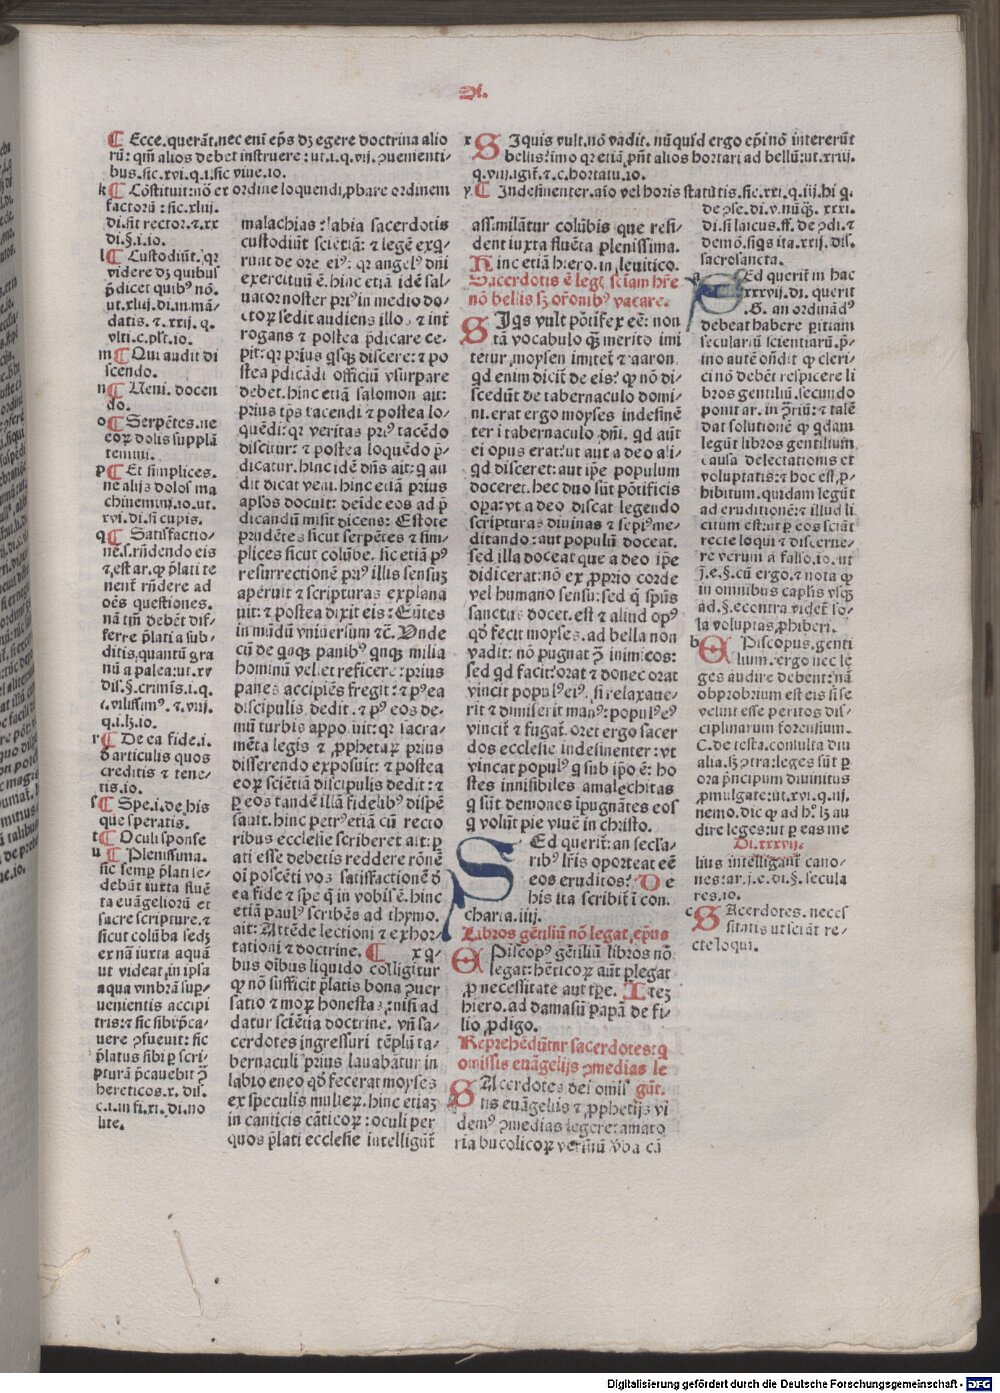 Di.
¶ Ecce. querāt. nec eni ep̄s dꝫ egere doctrina alio
rū: qm̄ alios debet instruere: ut. i. q. vij. ꝯuenienti/
bus. sic xvi. q. i. sic viue. io.
k ¶ Cōstituit: nō ex ordine loquendi ꝓbare ordinem
factorū: sic xlij.
di. sit rector. ⁊. xx
di. §. i. io.
l ¶ Custodiūt. qr
videre dꝫ quibus
p̄dicet quibꝰ nō.
ut. xliij. di. in mā/
datis. ⁊. xxij. q.
vlti. c. pſt. io.
m ¶ Qui audit di
scendo.
n ¶ Ueni. docen
do.
o ¶ Serpētes. ne
eoꝝ dolis supplā
temini.
p ¶ Et simplices.
ne alijs dolos ma
chinemini. io. ut.
xvi. di. si cupis.
q ¶ Satisfactio/
ne. s. rn̄dendo eis
⁊ est ar. ꝙ p̄lati te
nent̄ rn̄dere ad
oēs questiones.
nā tm̄ debēt dif/
ferre p̄lati a sub/
ditis, quantū gra
nū a palea: ut. xv
dis. §. crimīs. i. q.
i. vilissimꝰ. ⁊. viij.
q. i. lꝫ. io.
r ¶ De ea fide. i.
d̄ articulis quos
creditis ⁊ tene/
tis. io.
s ¶ Spe. i. de his
que speratis.
t ¶ Oculi sponse
u ¶ Plenissima.
sic semp p̄lati se/
debāt iuxta fluē
ta euāgeliorū et
sacre scripture. ⁊
sicut colūba sedꝫ
ex nā iuxta aquā
ut videat in ipsa
aqua vmbrā sup/
uenientis accipi
tris: ⁊ sic sibi p̄ca/
uere ꝯsueuit: sic
p̄latus sibi ꝑ scri/
pturā p̄cauebit ꝯ̄
hereticos. x. dis.
c. i. in fi. xi. di. no
lite.
malachias: labia sacerdotis
custodiūt sciētiā: ⁊ legē exq̄/
runt de ore eiꝰ: qr angelꝰ dn̄i
exercituū ē. hinc etiā idē sal/
uator noster priꝰ in medio do/
ctoꝝ sedit audiens illos ⁊ int̄
rogans ⁊ postea p̄dicare ce/
pit: qr prius qsq̄ discere: ⁊ po
stea p̄dicādi officiū vsurpare
debet. hinc etiā salomon ait:
prius tp̄s tacendi ⁊ postea lo/
quēdi: qr veritas priꝰ tacēdo
discitur: ⁊ postea loquēdo p̄/
dicatur. hinc idē dn̄s ait: q au
dit dicat veni. hinc etiā prius
ap̄los docuit: deīde eos ad p̄
dicandū misit dicens: Estote
prudētes sicut serpētes ⁊ sim/
plices sicut colūbe. sic etiā pꝰ
resurrectionē priꝰ illis sensuꝫ
aperuit ⁊ scripturas explana
uit: ⁊ postea dixit eis: Eūtes
in mūdū vniuersum ⁊c̄. Unde
cū de qnqꝫ panibꝰ qnqꝫ milia
hominū vellet reficere: prius
panes accipiēs fregit: ⁊ pꝰea
discipulis dedit. ⁊ pꝰ eos de/
mū turbis apposuit: qr sacra/
mēta legis ⁊ ꝓphetaꝝ prius
disserendo exposuit: ⁊ postea
eoꝝ sciētiā discipulis dedit: ⁊
ꝑ eos tandē illā fidelibꝰ dispē
sauit. hinc petrꝰ etiā cū recto
ribus ecclesie scriberet ait: ꝑ
ati esse debetis reddere rōnē
oi poscēti vos satisfactionē d̄
ea fide ⁊ spe q̄ in vobis ē. hinc
etiā paulꝰ scribēs ad thymo.
ait: Attēde lectioni ⁊ exhor/
tationi ⁊ doctrine. ¶ x q̄/
bus oībus liquido colligitur
ꝙ nō sufficit p̄latis bona ꝯuer
satio ⁊ moꝝ honestas: nisi ad
datur sciētia doctrine. vn̄ sa/
cerdotes ingressuri tēplū ta/
bernaculi prius lauabātur in
labio eneo qd̄ fecerat moyses
ex speculis mulieꝝ. hinc etiaꝫ
in canticis cāticoꝝ: oculi per
quos p̄lati ecclesie intelligūt̄
x Siquis vult. nō vadit. nūquid ergo ep̄i nō intererūt
bellis: imo qr etiā pn̄t alios hortari ad bellū: ut. xxiij.
q. viij. igit̄. ⁊. c. hortatu. io.
y ¶ Indesinenter. aīo vel horis statutis. sic. xxi. q. iij. hi q.
assimilātur colūbis que resi/
dent iuxta fluēta plenissima.
Hinc etiā hiero. in leuitico.
Sacerdotis ē legē sciam hr̄e
nō bellis sꝫ or̄onibꝰ vacare.
SIqs vult pōtifex eē: non
tā vocabulo qꝫ merito imi
tetur, moysen imitet̄ ⁊ aaron.
qd enim dicit̄ de eis: ꝙ nō di/
scedūt de tabernaculo domi/
ni. erat ergo moyses indesinē
ter ī tabernaculo dn̄i. qd aūt
ei opus erat: ut aut a deo ali/
qd disceret: aut ip̄e populum
doceret. hec duo sūt pōtificis
oꝑa: vt a deo discat legendo
scripturas diuinas ⁊ sepiꝰ me/
ditando: aut populū doceat.
sed illa doceat que a deo ip̄e
didicerat: nō ex ꝓprio corde
vel humano sensu: sed q̄ sp̄us
sanctus docet. est ⁊ aliud opꝰ
qd̄ fecit moyses. ad bella non
vadit: nō pugnat ꝯ̄ inimicos:
sed qd facit: orat ⁊ donec orat
vincit populꝰ eiꝰ. si relaxaue/
rit ⁊ dimiserit manꝰ: populꝰ eꝰ
vincit̄ ⁊ fugat̄. oret ergo sacer
dos ecclesie indesinenter: vt
vincat populꝰ q sub ip̄o ē: ho
stes inuisibiles amalechitas
q sūt demones īpugnātes eos
q volūt pie viuē in christo.
SEd querit̄: an secla/
ribꝰ lr̄is oporteat eē
eos eruditos? De
his ita scribit̄ ī con.
charta. iiij.
Libros gētiliū nō legat, ep̄us
EPiscopꝰ gētiliū libros nō
legat: hēticoꝝ aūt ꝑlegat
ꝓ necessitate aut tꝑe. Iteꝫ
hiero. ad damasū papā de fi/
lio ꝓdigo.
Reprehēdūtur sacerdotes: q
omissis euāgelijs ꝯmedias le
SAcerdotes dei omis/ gūt.
sis euāgelijs ⁊ ꝓphetijs vi
demꝰ ꝯmedias legere: amato
ria bucolicoꝝ versuū v̄ba cā
de ꝯse. di. v. nūq̄. xxxi.
di. si laicus. ff. de ꝯdi. ⁊
demō. siqs ita. xxij. dis.
sacrosancta.
a SEd querit̄ in hac
xxxvij. di. querit
.G. an ordinādꝰ
debeat habere ꝑitiam
seculariū scientiarū. p̄/
mo autē oñdit ꝙ cleri/
ci nō debēt respicere li
bros gentiliū. secundo
ponit ar. in ꝯriū: ⁊ talē
dat solutionē ꝙ qdam
legūt libros gentilium
causa delectationis et
voluptatis: ⁊ hoc est ꝓ/
hibitum. quidam legūt
ad eruditionē: ⁊ illud li
citum est: ut ꝑ eos sciāt
recte loqui ⁊ discerne/
re verum a falso. io. ut
j. e. §. cū ergo. ⁊ nota ꝙ
in omnibus caplīs vsqꝫ
ad. §. econtra videt̄ so/
la voluptas ꝓhiberi.
b EPiscopus. genti
lium. ergo nec le
ges audire debent: nā
obprobrium est eis si se
velint esse peritos dis/
ciplinarum forensium.
C. de testa. consulta diu
alia. sꝫ ꝯtra: leges sūt ꝑ
ora p̄ncipum diuinitus
ꝓmulgate: ut. xvi. q. iij.
nemo. dic ꝙ ad hꝰ lꝫ au
dire leges: ut ꝑ eas me
Di. xxxvij.
lius intelligant̄ cano/
nes: ar. j. e. di. §. secula
res. io.
c SAcerdotes. neces
sitatis ut sciāt re/
cte loqui.
Digitalisierung gefördert durch die Deutsche Forschungsgemeinschaft - DFG